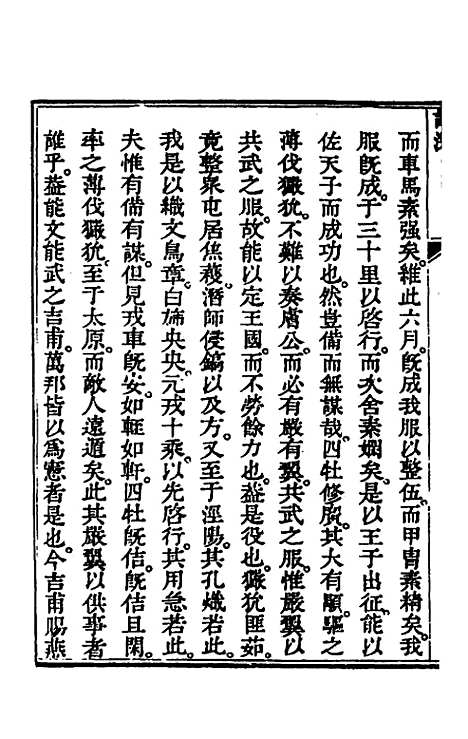 而車馬素强矣。維此六月。旣成我服以整伍。而甲冑素精矣。我
服旣成。于三十里以啓行。而次舍素嫺矣。是以王于出征。能以
佐天子而成功也。然豈備而無謀哉。四牡修廣。其大有顒。驅之
薄伐玁狁。不難以奏膚公。而必有嚴有翼。共武之服。惟嚴翼以
共武之服。故能以定王國。而不勞餘力也。蓋是役也。玁狁匪茹。
竟整衆屯居焦穫。潛師侵鎬以及方。又至于涇陽。其孔熾若此。
我是以織文鳥章。白斾央央。元戎十乘。以先啓行。其用急若此。
夫惟有備有謀。但見戎車旣安。如輊如軒。四牡旣佶。旣佶且閑。
率之薄伐玁狁。至于太原。而敵人遠遁矣。此其嚴翼以供事者
誰乎。蓋能文能武之吉甫。萬邦皆以爲憲者是也。今吉甫賜燕